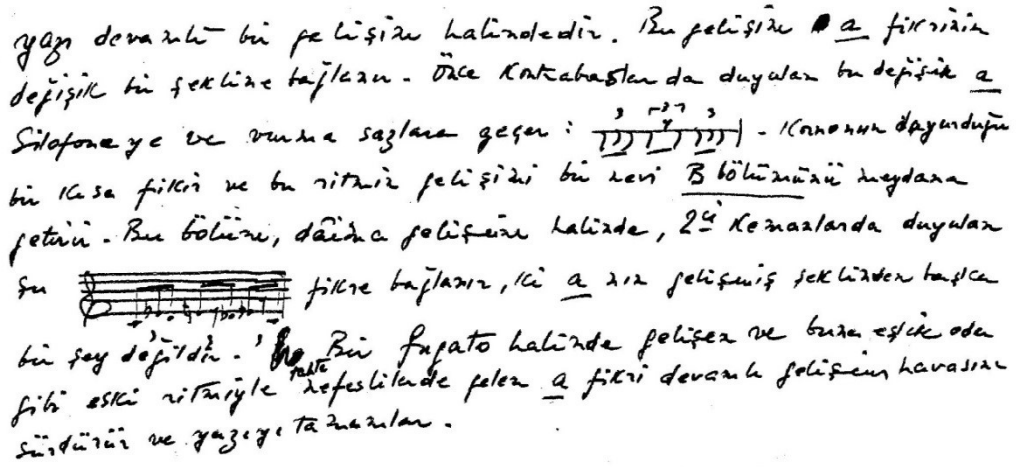 yazı devamlı bir gelişim halindedir. Bu gelişim a fikrinin
değişik bir şekline bağlanır. Önce Kontrabaslarda duyulan bu değişik a
Silofone ye ve vurma sazlara geçer: 3 3 3 - Kornonun duyurduğu
bir kısa fikir ve bu ritmin gelişimi bir nevi B bölümünü meydana
getirir. Bu bölüm, dâima gelişim halinde, 2ci Kemanlarda duyulan
şu fikre bağlanır, ki a nın gelişmiş şeklinden başka
bir şey değildir. Bir fugato halinde gelişen ve buna eşlik eden
gibi eski ritmiyle tahta nefeslilerde gelen a fikri devamlı gelişim havasını
sürdürür ve yazıyı tamamlar.